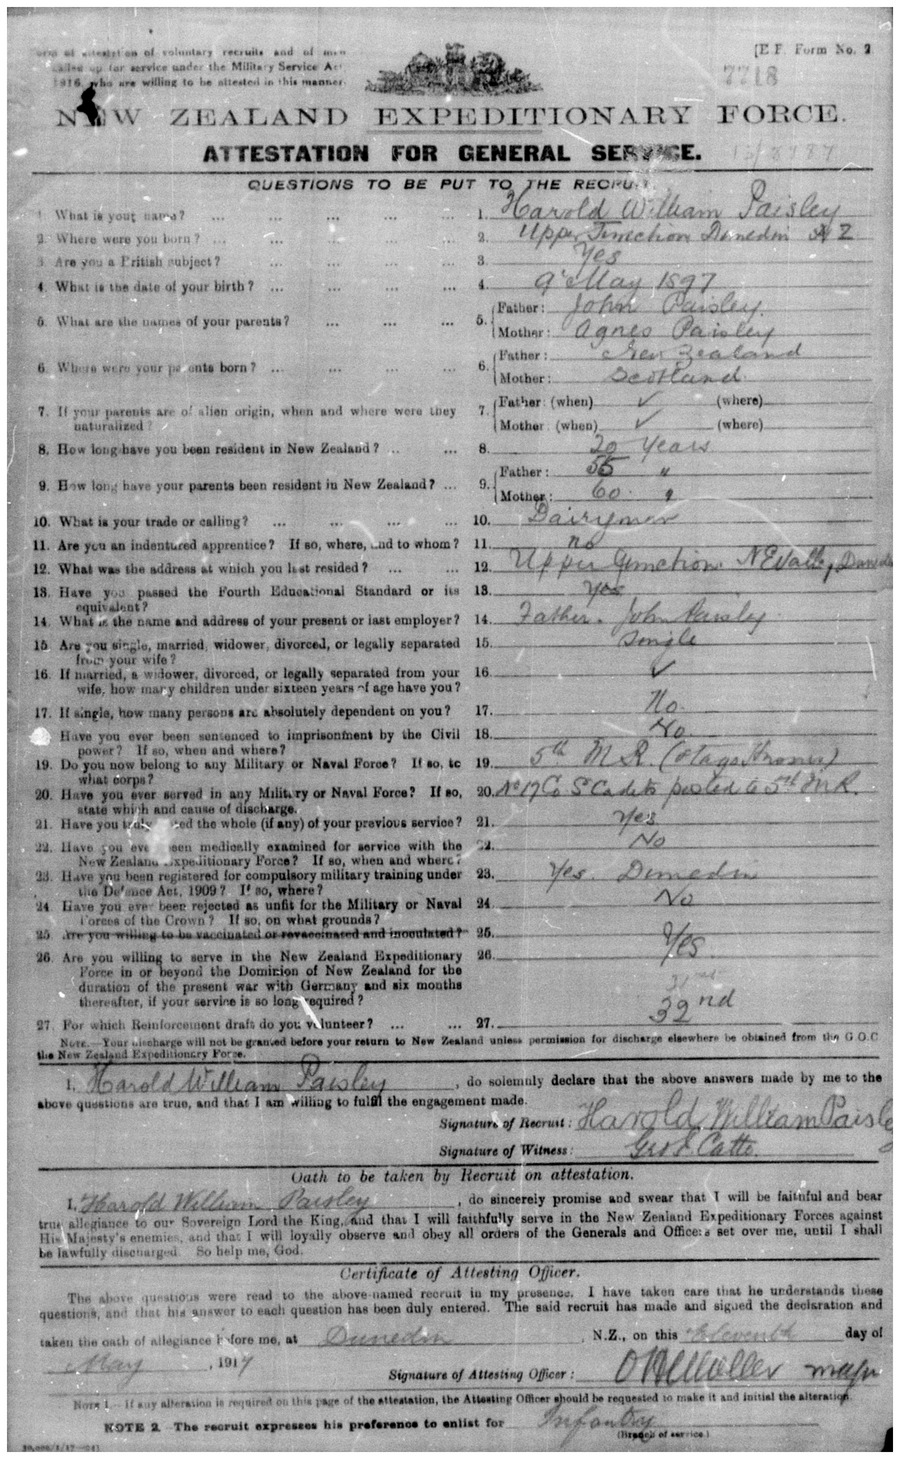 Form of attestation of voluntary recruits and of men
called up for service under the Military Service Act
1916, who are willing to be attested in this manner.
[E F. Form No. 2
7718
NEW ZEALAND EXPEDITIONARY FORCE.
ATTESTATION FOR GENERAL SERVICE.
QUESTIONS TO BE PUT TO THE RECRUIT.
1. What is your name? ... ... ... ... 1. Harold William Paisley
2. Where were you born? ... ... ... ... 2. Upper Junction Dunedin N Z
3. Are you a British subject? ... ... ... 3. Yes
4. What is the date of your birth? ... ... ... ... 4. 9th May 1897
5. What are the names of your parents? ... ... ... 5. Father: John Paisley.
Mother: Agnes Paisley
6. Where were your parents born? ... ... ... ... 6. Father: New Zealand
Mother: Scotland.
7. If your parents are of alien origin, when and where were they
naturalized? 7. Father: (when) ✓ (where)
Mother: (when) ✓ (where)
8. How long have you been resident in New Zealand? ... ... 8. 20 Years
9. How long have your parents been resident in New Zealand? ... 9. Father: 55 "
Mother: 60. "
10. What is your trade or calling? ... ... ... ... 10. Dairyman
11. Are you an indentured apprentice? If so, where, and to whom? 11. no
12. What was the address at which you last resided? ... ... 12. Upper Junction. N E Valley, Dunedin
13. Have you passed the Fourth Educational Standard or its
equivalent? 13. Yes
14. What is the name and address of your present or last employer? 14. Father. John Paisley
15. Are you single, married, widower, divorced, or legally separated
from your wife? 15. Single
16. If married, a widower, divorced, or legally separated from your
wife, how many children under sixteen years of age have you? 16. ✓
17. If single, how many persons are absolutely dependent on you? 17. No.
Have you ever been sentenced to imprisonment by the Civil
power? If so, when and where? 18. No.
19. Do you now belong to any Military or Naval Force? If so, to
what corps? 19. 5th M R. (Otago Hussars)
20. Have you ever served in any Military or Naval Force? If so,
state which and cause of discharge. 20. No 17 Co S Cadets posted to 5th M R.
21. Have you truly stated the whole (if any) of your previous service? 21. Yes
22. Have you ever been medically examined for service with the
New Zealand Expeditionary Force? If so, when and where? 22. No
23. Have you been registered for compulsory military training under
the Defence Act, 1909? If so, where? 23. Yes. Dunedin
24. Have you ever been rejected as unfit for the Military or Naval
Forces of the Crown? If so, on what grounds? 24. No
25. Are you willing to be vaccinated or revaccinated and inoculated? 25.
26. Are you willing to serve in the New Zealand Expeditionary
Force in or beyond the Dominion of New Zealand for the
duration of the present war with Germany and six months
thereafter, if your service is so long required? 26. Yes
27. For which Reinforcement draft do you volunteer? ... ... 27. 32nd
NOTE.—Your discharge will not be granted before your return to New Zealand unless permission for discharge elsewhere be obtained from the G.O.C
the New Zealand Expeditionary Force.
I, Harold William Paisley, do solemnly declare that the above answers made by me to the
above questions are true, and that I am willing to fulfil the engagement made.
Signature of Recruit: Harold William Paisley
Signature of Witness: Geo S. Catto.
Oath to be taken by Recruit on attestation.
I, Harold William Paisley, do sincerely promise and swear that I will be faithful and bear
true allegiance to our Sovereign Lord the King, and that I will faithfully serve in the New Zealand Expeditionary Forces against
His Majesty's enemies, and that I will loyally observe and obey all orders of the Generals and Officers set over me, until I shall
be lawfully discharged. So help me, God.
Certificate of Attesting Officer.
The above questions were read to the above-named recruit in my presence. I have taken care that he understands these
questions, and that his answer to each question has been duly entered. The said recruit has made and signed the declaration and
taken the oath of allegiance before me, at Dunedin, N.Z., on this Eleventh day of
May, 1917
Signature of Attesting Officer: major
NOTE 1.—If any alteration is required on this page of the attestation, the Attesting Officer should be requested to make it and initial the alteration.
NOTE 2. The recruit expresses his preference to enlist for Infantry
(Branch of service.)